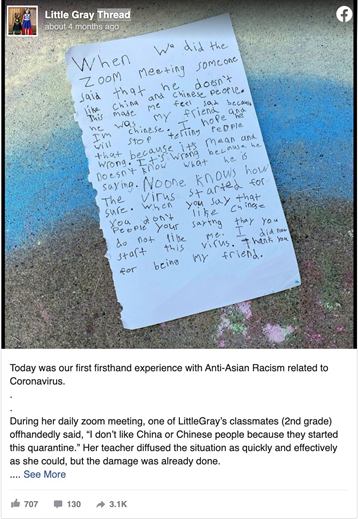 Little Gray Thread
about 4 months ago
When we did the
Zoom meeting someone
said that he doesn't
like China and Chinese people.
This made me feel sad because
he was my friend and
I'm chinese. I hope he
will stop telling people
that because it's mean and
wrong. It's wrong because he
doesn't know what he is
saying. Noone knows how
The virus started for
sure. When you say that
you don't like Chinese
People your saying that you
do not like me. I did not
start this virus. Thank you
for being my friend.
Today was our first firsthand experience with Anti-Asian Racism related to
Coronavirus.
.
.
During her daily zoom meeting, one of LittleGray's classmates (2nd grade)
offhandedly said, “I don't like China or Chinese people because they started
this quarantine.” Her teacher diffused the situation as quickly and effectively
as she could, but the damage was already done.
.... See More
707 130 3.1K